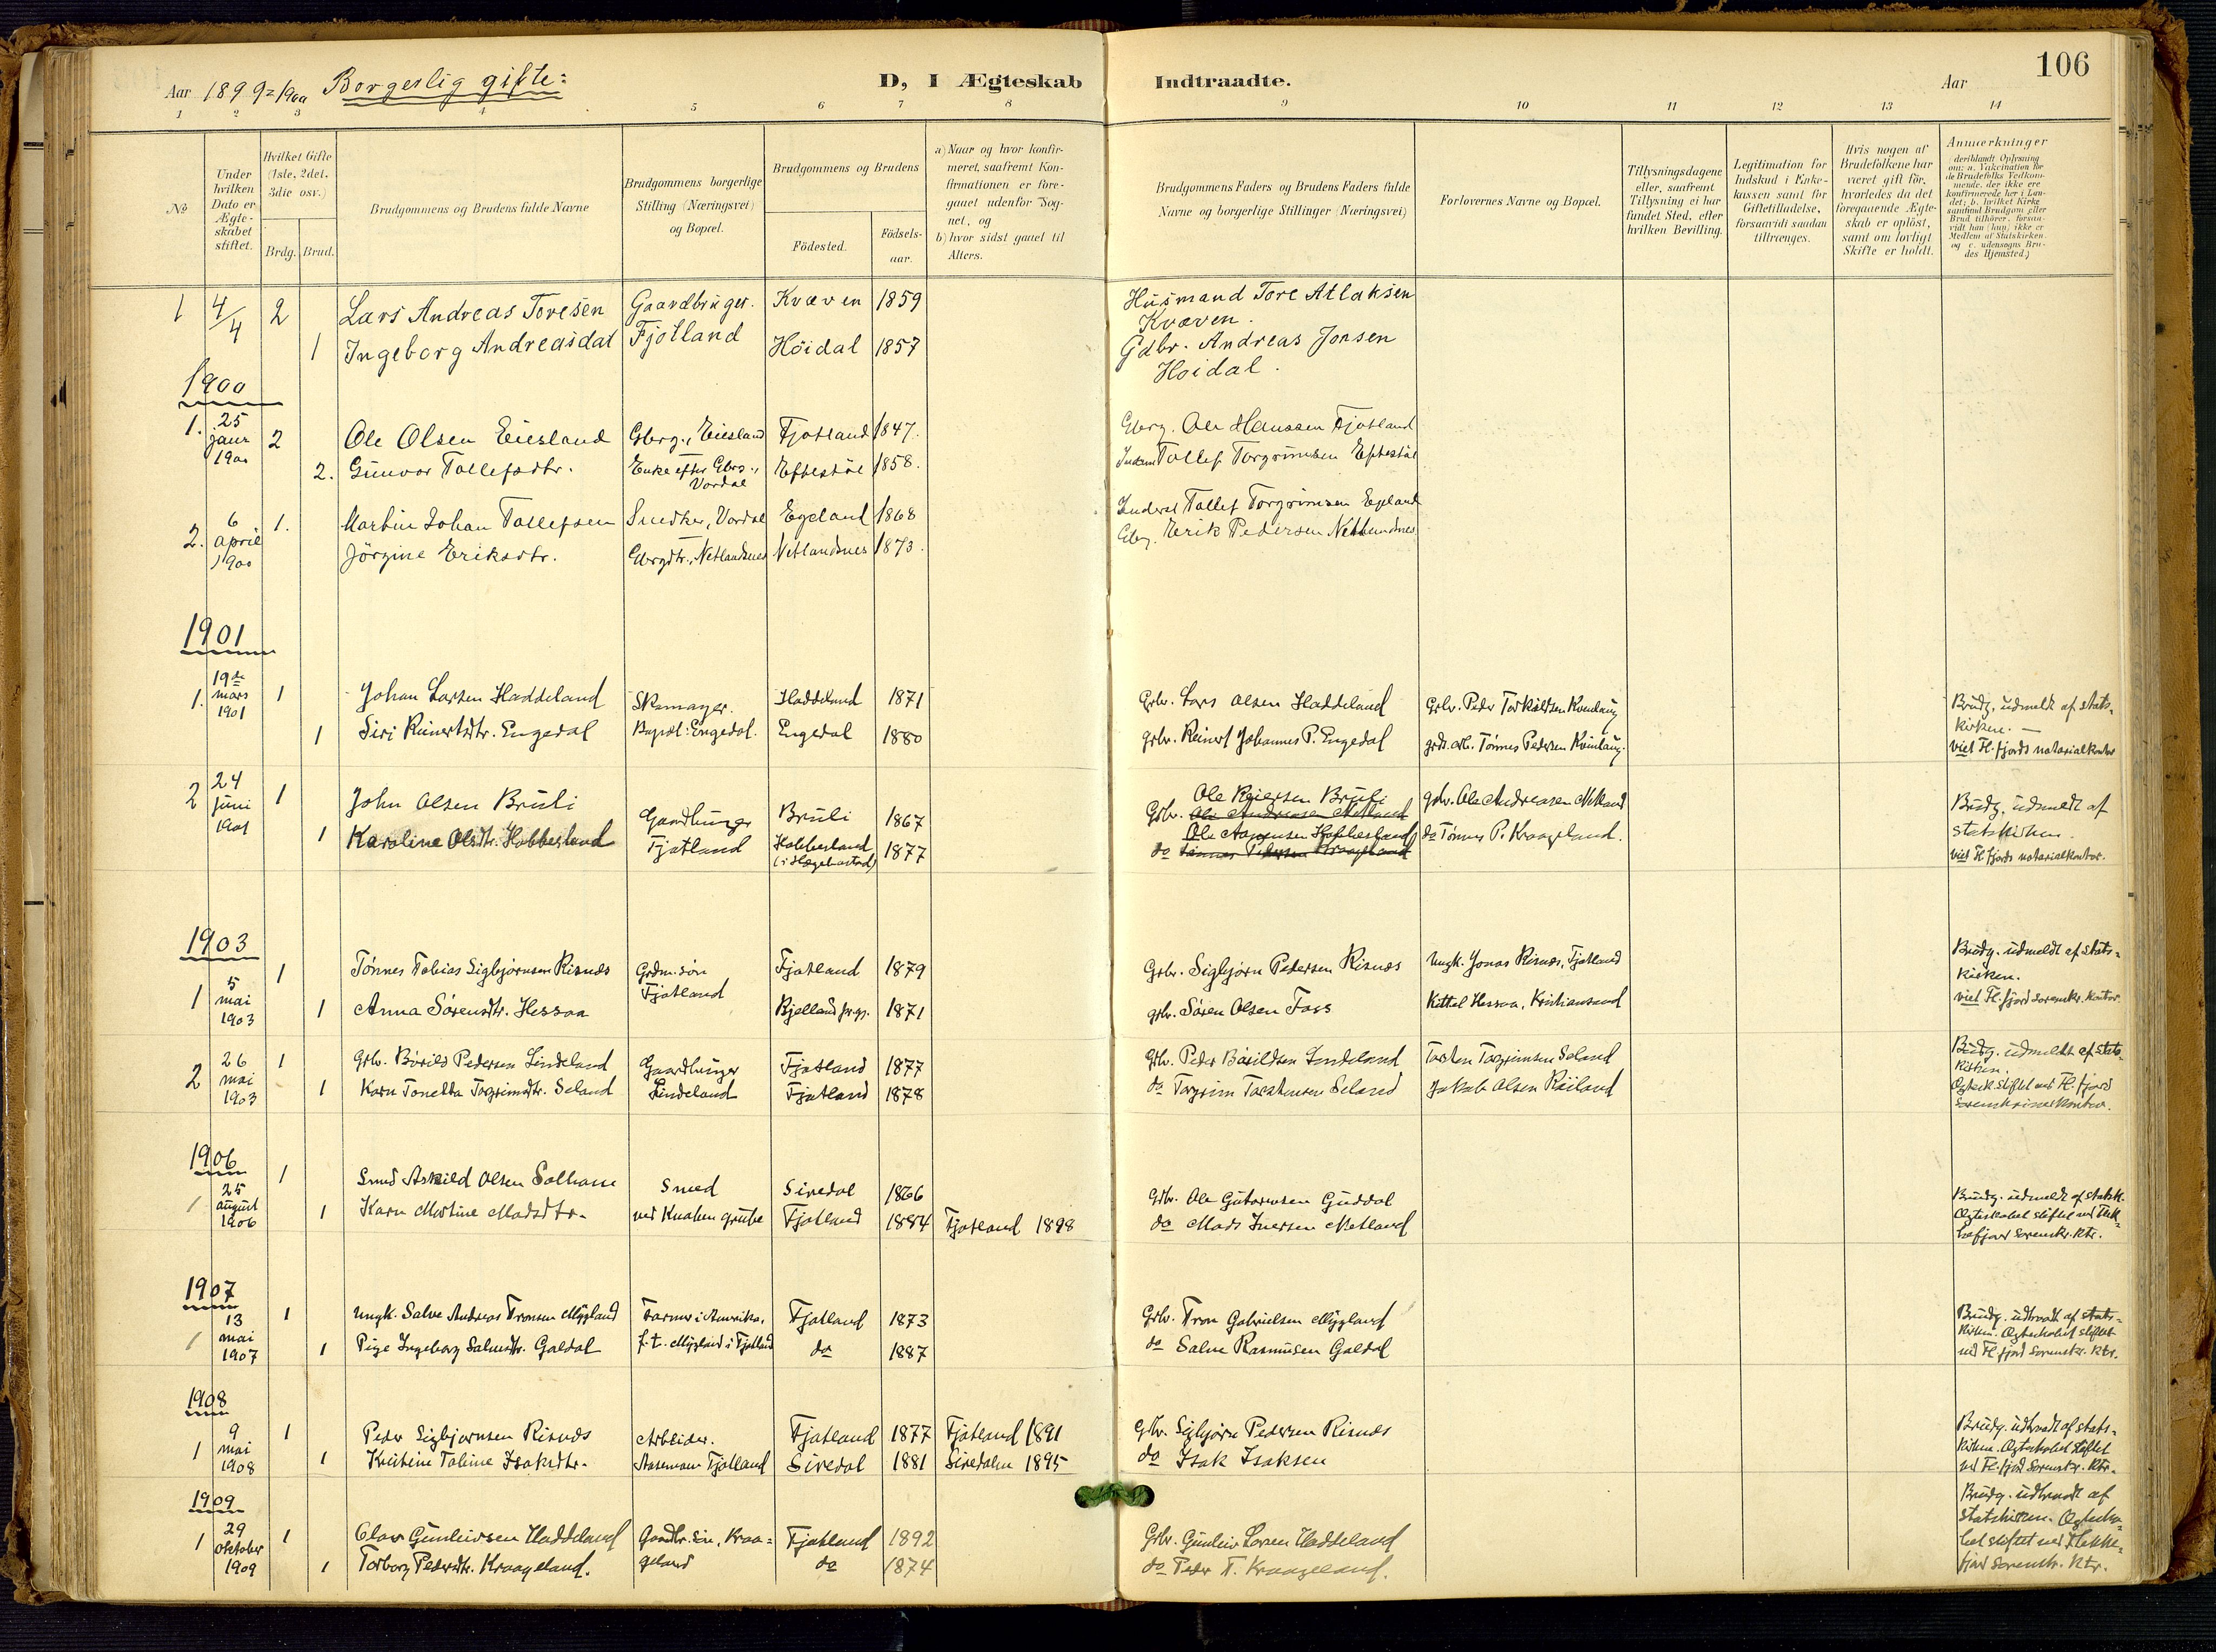 106
Aar 1899-1900 Borgerlig gifte:
D, I Ægteskab Indtraadte.
Aar
1 2 3 4 5 6 7 8 9 10 11 12 13 14
№
Under hvilken Dato er Ægteskabet stiftet.
Hvilket Gifte (1ste, 2det, 3die osv.)
Brdg. Brud.
Brudgommens og Brudens fulde Navne
Brudgommens borgerlige Stilling (Næringsvei) og Bopæl.
Brudgommens og Brudens
Födested.
Födsels-aar.
a) Naar og hvor konfir-
meret, saafremt Kon-
firmationen er fore-
gaaet udenfor Sog-
net, og
b) hvor sidst gaaet til
Alters.
Brudgommens Faders og Brudens Faders fulde
Navne og borgerlige Stillinger (Næringsvei)
Forlovernes Navne og Bopæl.
Tillysningsdagene
eller, saafremt
Tillysning ei har
fundet Sted, efter
hvilken Bevilling.
Legitimation for
Indskud i Enke-
kassen samt for
Giftetilladelse,
forsaavidt saadan
tiltrænges.
Hvis nogen af
Brudefolkene har
været gift för,
hvorledes da det
foregaaende Ægte-
skab er oplöst,
samt om lovligt
Skifte er holdt.
Anmærkninger
(deriblandt Oplysning
om: a. Vakcination for
de Brudefolks Vedkom-
mende, der ikke ere
konfirmerede her i Lan-
det; b. hvilket Kirke-
samfund Brudgom eller
Brud tilhörer, forsaa-
vidt han (hun) ikke er
Medlem af Statskirken,
og c. udensogns Bru-
des Hjemsted.)
1 4/4 2 Lars Andreas Toresen Gaardbruger. Kvæven 1859 Husmand Tore Atlaksen
Kvæven.
1 Ingeborg Andreasdat Fjotland Höidal 1857 Gdbr. Andreas Jonsen
Höidal.
1900
1. 25 Janr 1900 2 Ole Olsen Eiesland Gbrg., Eiesland Fjotland 1847. Gbrg. Ole Hanssen Fjotland
2. Gunvor Tollefsdtr. Enke efter Gbrg., Vordal Eftestöl 1858. Tollef Torgrimsen Eftestöl
2. 6 april 1900 1. Martin Johan Tollefsen Snedker, Vordal Egeland 1868 Tollef Torgrimsen Egeland
Jörgine Eriksdtr. Gbrgdtr., Netlandsnes Netlandsnes 1873. Gbrg. Erik Pedersen Netlandsnes
1901
1. 19de mars 1901 1 Johan Larsen Haddeland Skomager. Haddeland 1871 Grbr. Lars Olsen Haddeland Grbr. Peder Torkildsen Kvinlaug Brudg. udmeldt af stats-
kirken. —
1 Siri Reinertsdtr. Engedal Bopæl: Engedal. Engedal 1880 grbr. Reinert Johannes P. Engedal Tønnes Pedersen Kvinlaug. viet Fl.fjords notarialkontor
2 24 juni 1901 1 John Olsen Bruli Gaardbruger Bruli 1867 Grbr. Ole Reiersen Bruli grbr. Ole Andreasen Metland Brudg. udmeldt af
statskirken.
1 Karoline Olsdtr. Hobbesland Fjotland Hobbesland (i Hægebostad) 1877 do Ole Aanensen Hobbesland do Tønnes P. Kraageland. viet Fl.fjords notarialkontor.
1903
1 5 mai 1903 1 Tønnes Tobias Sigbjørnsen Risnæs Grdm.søn Fjotland 1879 Grbr. Sigbjørn Pedersen Risnæs Ungk. Jonas Risnæs, Fjotland Brudg. udmeldt af stats-
kirken.
1 Anna Sørensdtr. Hessaa Fjotland Bjelland prgj. 1871 grbr. Søren Olsen Foss Kittel Hessaa, Kristiansand viet Fl.fjord sorenskr. kontor.
2 26 mai 1903 1 Grbr. Bårild Pedersen Lindeland Gaardbruger Fjotland 1877 Grbr. Peder Bårildsen Lindeland Torsten Torgrimsen Seland Brudg. udmeldt af stats-
kirken.
1 Karn Tonetta Torgrimsdtr. Seland Lindeland Fjotland 1878 do Torgrim Torstensen Seland Jakob Olsen Røiland Ægtesk. stiftet ved Fl.fjord
sorenskriverkontor.
1906
1 25 august 1906 1 Smed Askild Olsen Solhaue Smed Siredal 1866 Grbr. Ole Gutormsen Guddal Brudg. udmeldt af statsk.
1 Karn Martine Madsdtr. ved Knaben grube Fjotland 1884 Fjotland 1898 do Mads Iversen Metland Ægteskabet stiftet ved Flek-
kefjord sorenskr. ktr.
1907
1 13 mai 1907 1 Ungk. Salve Andreas Tronsen Mygland Farmer i Amerika. Fjotland 1873 Grbr. Tron Gabrielsen Mygland Brudg. udtraadt af stats-
kirken. Ægteskabet stiftet
1 Pige Ingeborg Salvesdtr. Galdal f.t. Mygland i Fjotland do 1887 do Salve Rasmusen Galdal ved Fl.fjord sorenskr. ktr.
1908
1 9 mai 1908 1 Peder Sigbjørnsen Risnæs Arbeider. Fjotland 1877 Fjotland 1891 Grbr. Sigbjørn Pedersen Risnæs Brudg. udtraadt af stats-
kirken. Ægteskabet stiftet
1 Kristine Tobine Isaksdtr. Fjotland Siredal 1881 Siredalen 1895 do Isak Isaksen ved Fl.fjord sorenskr. ktr.
1909
1 29 oktober 1909 1 Olav Gunleivsen Haddeland Gaardbr. søn, Kraa- Fjotland 1892 Grbr. Gunleiv Larsen Haddeland Brudg. udtraadt af
statskirken. Ægteska-
1 Torborg Pedersdtr. Kraageland. geland do 1874 do Peder T. Kraageland. bet stiftet ved Flekke-
fjord sorenskr. ktr.